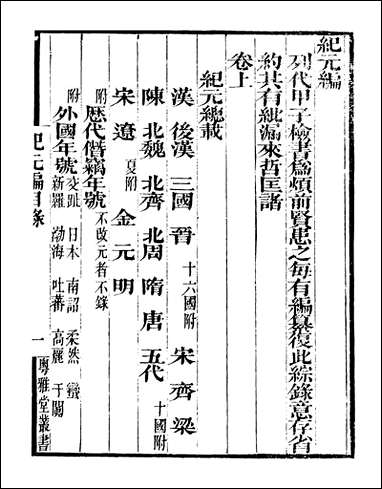 紀元編
列代甲子檢書爲煩前賢患之每有編纂復此綜錄意存省
約其有紕漏來哲匡諸
卷上
紀元總載
漢 後漢 三國 晉 十六國附 宋 齊 梁
陳 北魏 北齊 北周 隋 唐 五代 十國附
宋 遼 夏附 金 元 明
附歷代僭竊年號 不改元者不錄
附外國年號 交趾 日本 南詔 柔然 蠻
新羅 渤海 吐蕃 高麗 于闐
紀元編目錄 一 粵雅堂叢書